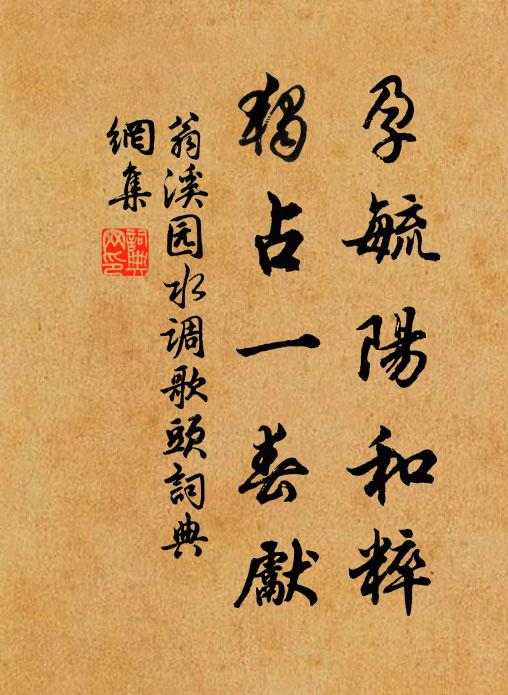 孕毓陽和粹
獨占一春獻
翁溪园水调歌頭詞典
網集
詞典
网印